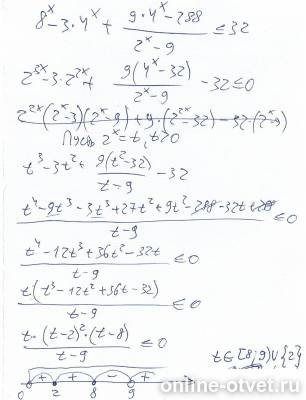 8^x - 3·4^x + (9·4^x - 288)/(2^x - 9) ≤ 32
2^{3x} - 3·2^{2x} + 9(4^x - 32)/(2^x - 9) - 32 ≤ 0
2^{2x}(2^x - 3)(2^x - 9) + 9·(2^{2x} - 32) - 32·(2^x - 9)
Пусть 2^x = t, t>0
t^3 - 3t^2 + 9(t^2 - 32)/(t - 9) - 32
(t^4 - 9t^3 - 3t^3 + 27t^2 + 9t^2 - 288 - 32t + 288)/(t - 9) ≤ 0
(t^4 - 12t^3 + 36t^2 - 32t)/(t - 9) ≤ 0
t(t^3 - 12t^2 + 36t - 32)/(t - 9) ≤ 0
t·(t - 2)^2·(t - 8)/(t - 9) ≤ 0
t∈[8;9)∪{2}
+ + - +
0 2 8 9
online-otvet.ru